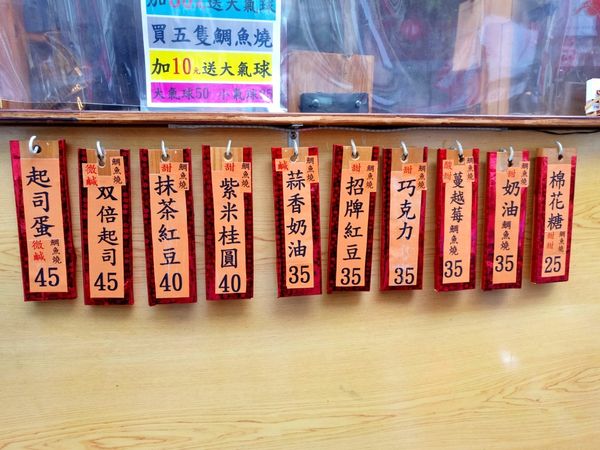 送大氣球
買五隻鯛魚燒
加10元送大氣球
大氣球50 小氣球25
起司蛋 鯛魚燒 微鹹 45
微鹹 鯛魚燒 双倍起司 45
甜 鯛魚燒 抹茶紅豆 40
甜 鯛魚燒 紫米桂圓 40
鹹 鯛魚燒 蒜香奶油 35
甜 鯛魚燒 招牌紅豆 35
甜 鯛魚燒 巧克力 35
甜 蔓越莓 鯛魚燒 35
甜 奶油 鯛魚燒 35
棉花糖 鯛魚燒 甜甜 25